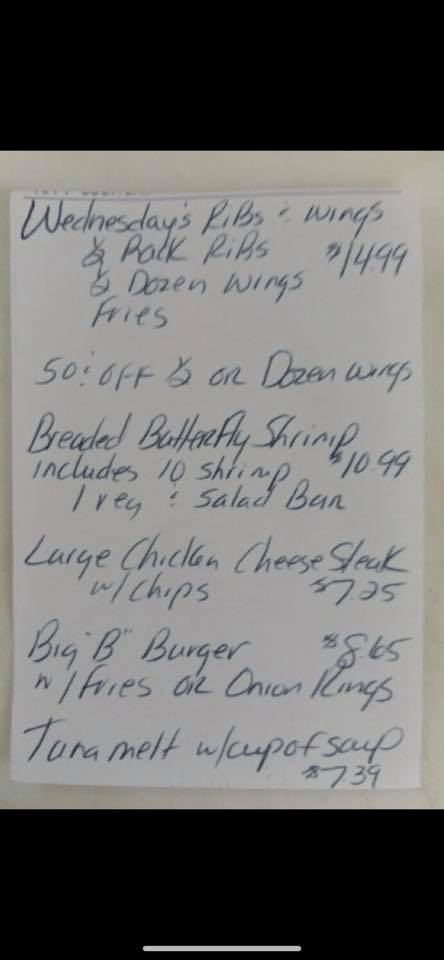 Wednesday's Ribs & wings
½ Rack Ribs $14.99
½ Dozen wings
Fries
50¢ OFF ½ OR Dozen wings
Breaded Butterfly Shrimp
includes 10 shrimp $10.99
1 veg & Salad Bar
Large Chicken Cheese Steak
w/ chips $7.25
Big "B" Burger $8.65
w/ Fries OR Onion Rings
Tuna melt w/cup of soup
$7.39